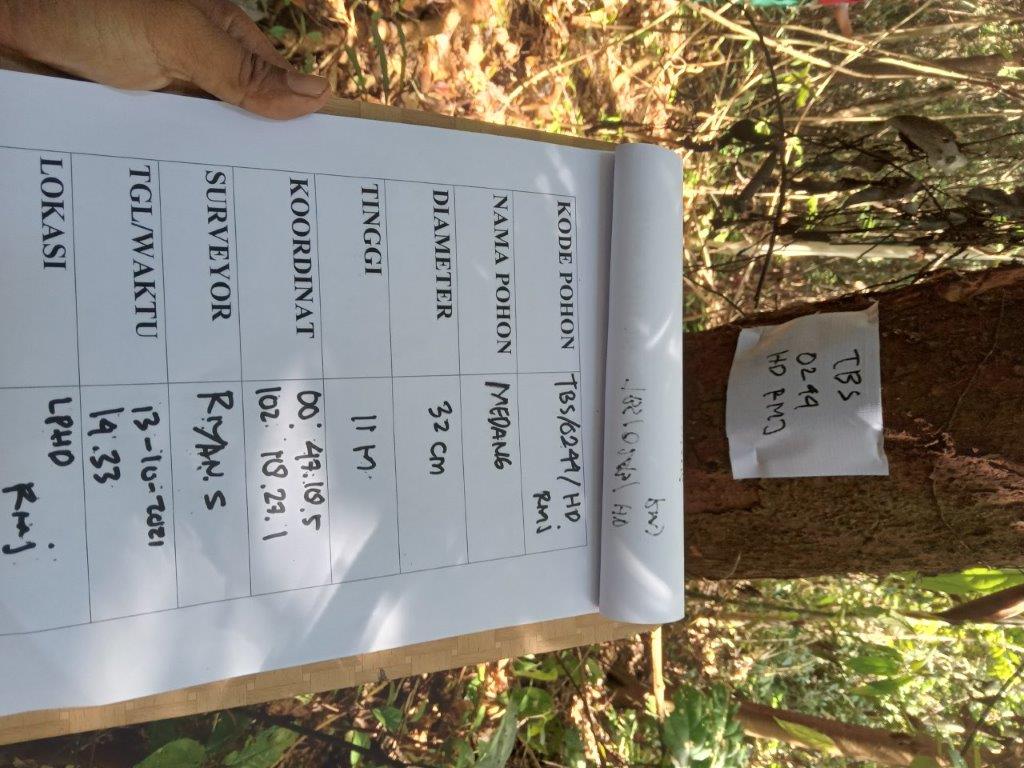 TBS
0244
HD RMJ
KODE POHON TBS/0244/HD.
RMJ
NAMA POHON MEDANG
DIAMETER 32 cm
TINGGI 11 M.
KOORDINAT 00: 47.18.5
102. 18.27.1
SURVEYOR RIYAN. S
TGL/WAKTU 13-10-2021
14.33
LOKASI LPHD
RMJ